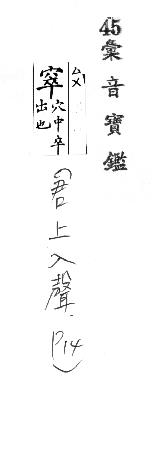 45彙音寶鑑
ㄙㄨˋ
窣 穴中卒
出也
(君上入聲 P14)